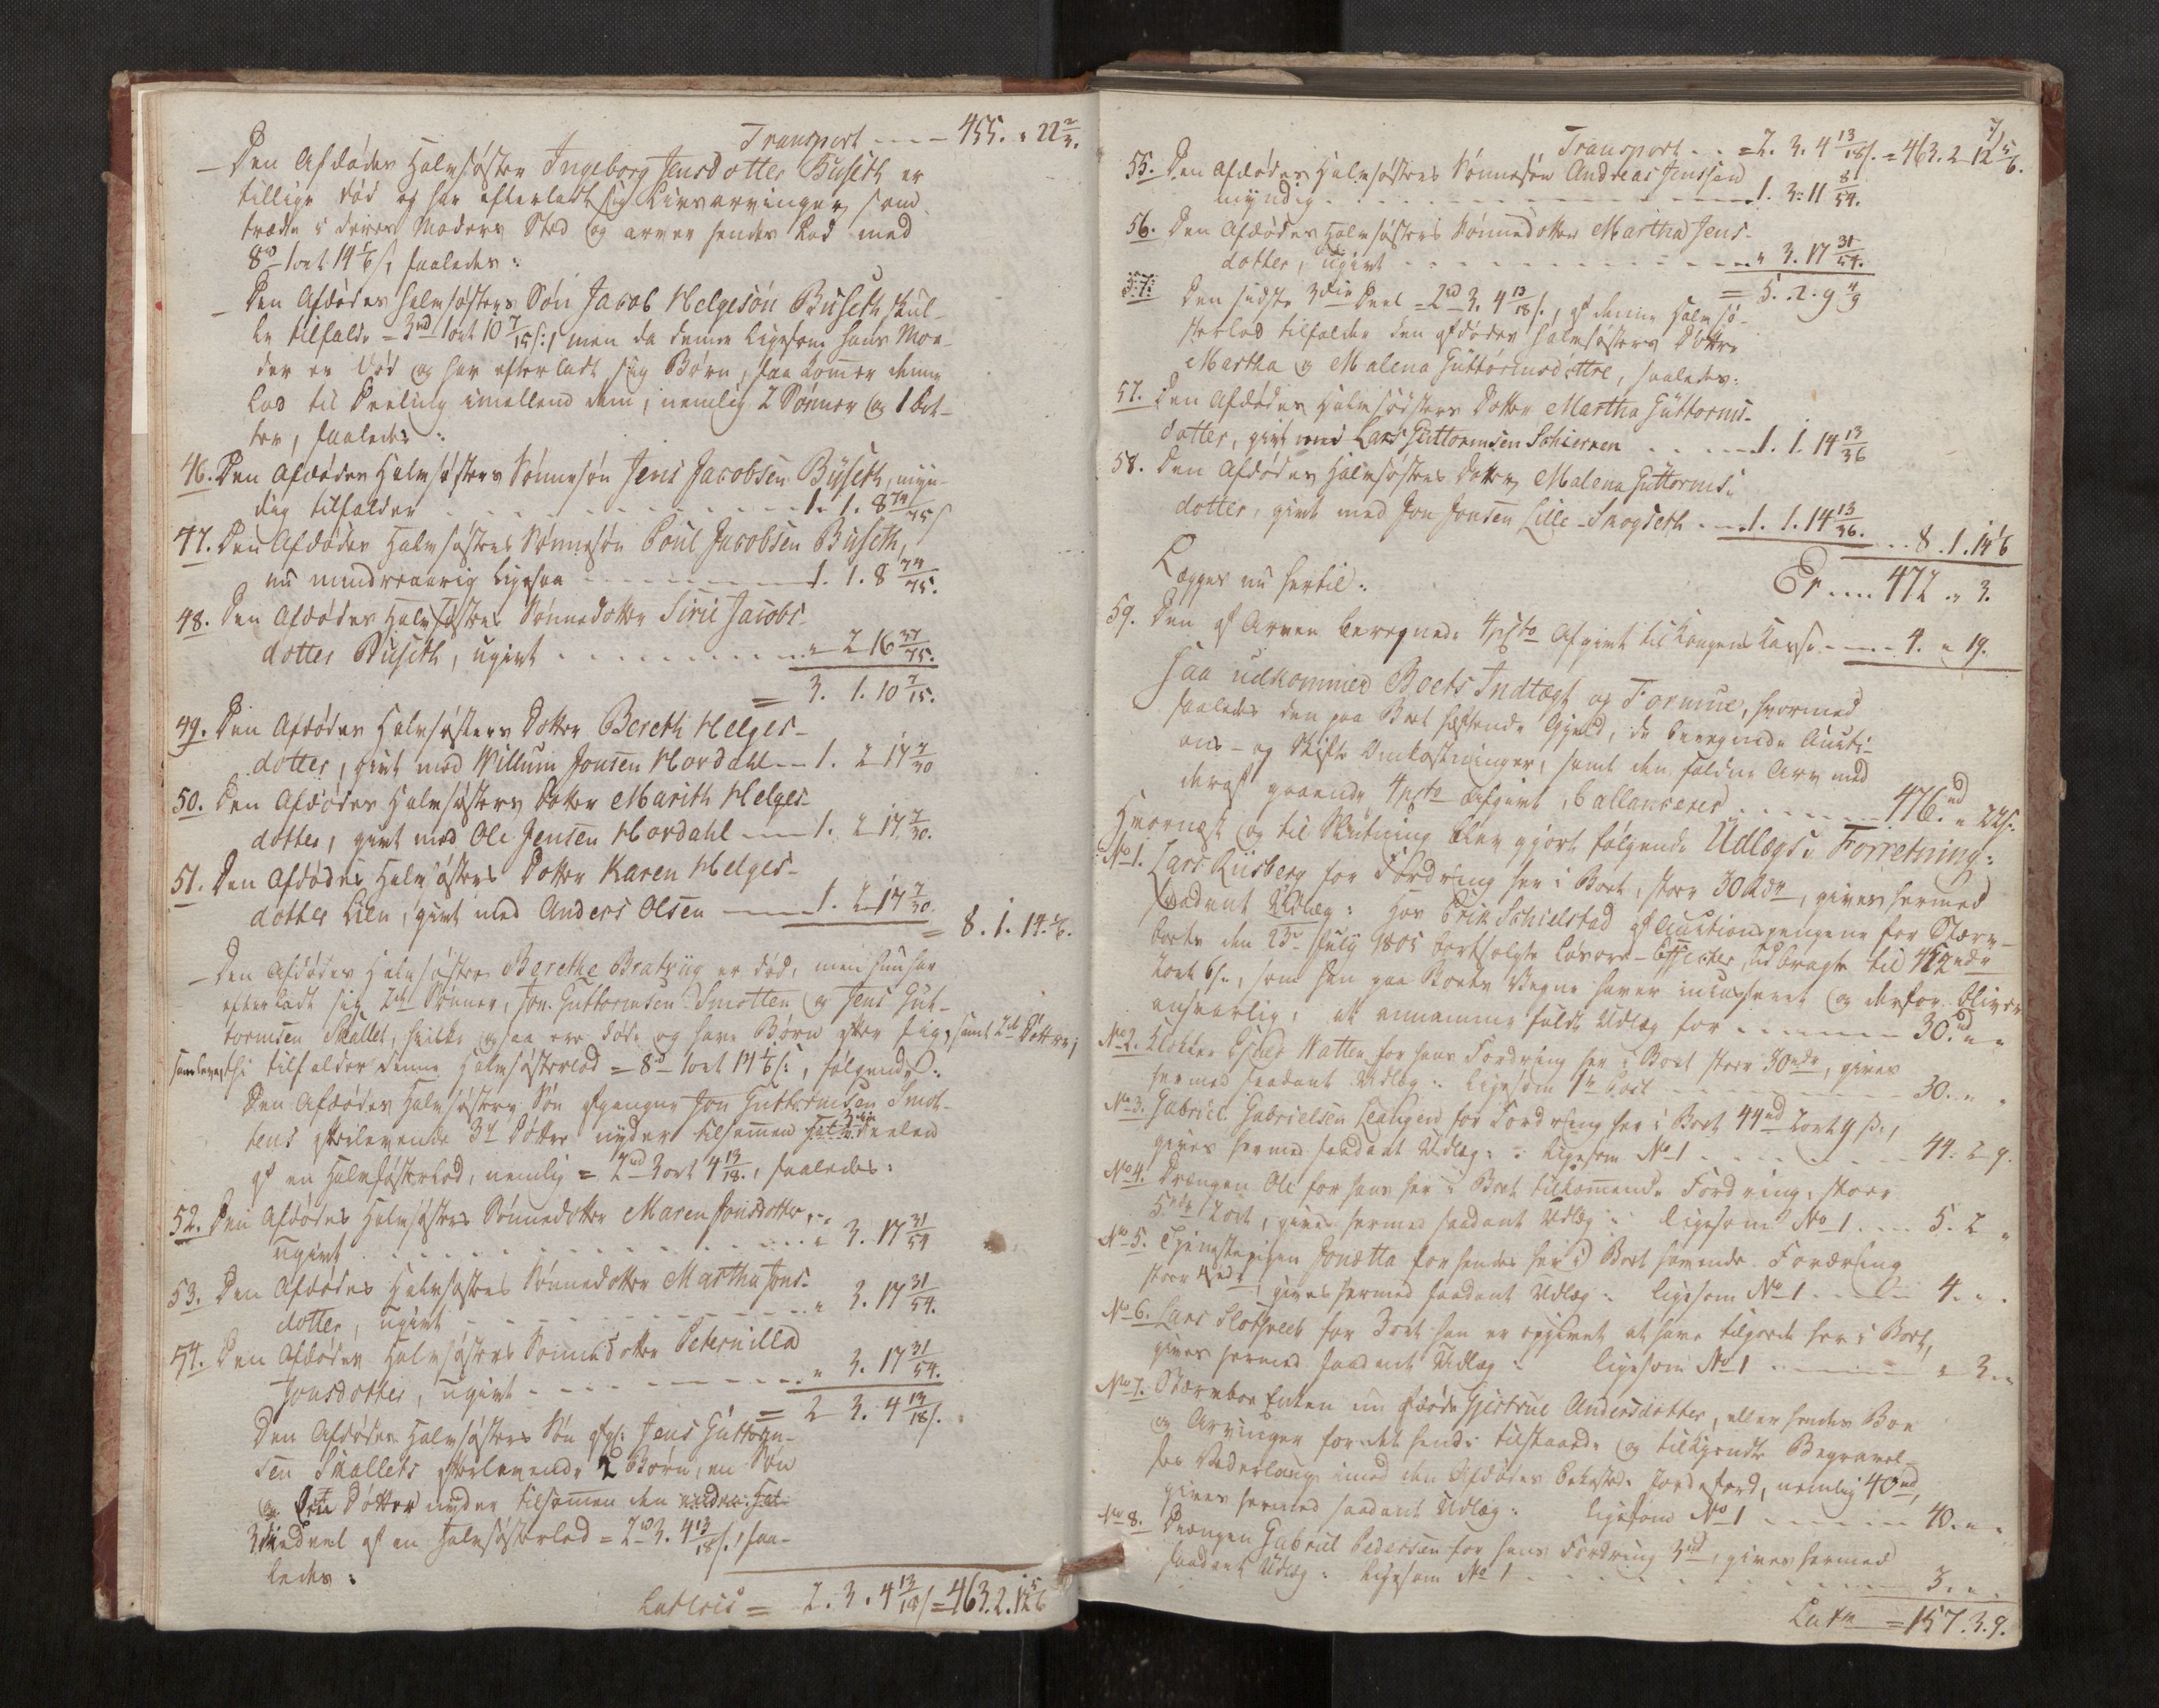 Transport - - - 455. " 22 2/3.
- Den Afdødes Halvsøster Ingeborg Jensdotter Buseth er
tillige død og har efterladt sig Livsarvinger som
træde i deres Moders Sted og arver hendes Lod med
8rd 1ort 14 1/6 s, saaledes:
- Den Afdødes Halvsøsters Søn Jacob Helgesøn Buseth skul-
le tilfalde = 3rd 1ort 10 7/15 s: men da denne ligesom hans Mo-
der er død og har efterladt sig Børn, saa kommer denne
Lod til Deeling imellem dem, nemlig 2 Sønner og 1 Dot-
ter, saaledes:
46. Den Afdødes Halvsøsters Sønnesøn Jens Jacobsen Buseth, myn-
dig tilfalder - - - 1. 1. 8 74/75 s
47. Den Afdødes Halvsøsters Sønnesøn Poul Jacobsen Buseth,
nu mindreaarig ligesaa - - - 1. 1. 8 74/75.
48. Den Afdødes Halvsøsters Sønnedotter Sirie Jacobs-
dotter Buseth, ugivt - - - " 2 16 37/75.
= 3. 1. 10 7/15.
49. Den Afdødes Halvsøsters Dotter Bereth Helges-
dotter, givt med Willum Jonsen Hordahl - - 1. 2 17 7/30
50. Den Afdødes Halvsøsters Dotter Marith Helges-
dotter, givt med Ole Jensen Hordahl - - 1. 2 17 7/30.
51. Den Afdødes Halvsøsters Dotter Karen Helges-
dotter Lien, givt med Anders Olsen - - 1. 2 17 7/30.
= 8. 1. 14 1/6.
- Den Afdødes Halvsøster Berethe Bratsiig er død, men hun har
efterladt sig 2de Sønner, Jon Guttormsen Smotten og Jens Gut-
tormsen Skallet, hvilke ogsaa ere døde og have Børn efter sig, samt 2de Døttre,
tilfalder denne Halvsøsterlod = 8rd 1ort 14 1/6 s:, følgende:
Den Afdødes Halvsøsters Søn afgangne Jon Guttormsen Smot-
tens efterlevende 3de Døttre nyder tilsammen 3die deelen
af en Halvsøsterlod, nemlig = 2rd 3ort 4 13/18, saaledes:
52. Den Afdødes Halvsøsters Sønnedotter Maren Jonsdotter,
ugivt - - - " 3. 17 31/54
53. Den Afdødes Halvsøsters Sønnedotter Martha Jons-
dotter, ugivt - - - " 3. 17 31/54.
54. Den Afdødes Halvsøsters Sønnedotter Peternilla
Jonsdotter, ugivt - - - " 3. 17 31/54.
= 2 3. 4 13/18 s.
Den Afdødes Halvsøsters Søn afg: Jens Guttorm-
sen Skallets efterlevende 2 Børn, en Søn
og Dotter nyder tilsammen den
3die deel af en Halvsøsterlod = 2rd 3. 4 13/18 s., saa-
ledes:
Lateris = 2. 3. 4 13/18 s = 463. 2. 12 5/6
7
Transport - - = 2. 3. 4 13/18 s. = 463. 2 12 5/6.
55. Den Afdødes Halvsøsters Sønnesøn Andreas Jenssen
myndig - - - 1. 3. 11 8/54.
56. Den Afdødes Halvsøsters Sønnedotter Martha Jens-
dotter, ugivt - - - " 3. 17 31/54.
= 5. 2. 9 4/9
Den sidste 3die Deel = 2rd 3. 4 13/18 s., af denne Halvsø-
sterlod tilfalder den afdødes Halvsøsters Døttre
Martha og Malena Guttormsdøttre, saaledes:
57. Den Afdødes Halvsøsters Dotter Martha Guttorms-
dotter, givt med Lars Guttormsen Schierren - - 1. 1. 14 13/36
58. Den Afdødes Halvsøsters Dotter Malena Guttorms-
dotter, givt med Jon Jonsen Lille-Skogseth - - 1. 1. 14 13/36. - - 8. 1. 14 1/6
Er - - 472 " 3.
Lægges nu hertil:
59. Den af Arven beregnede 4 pCto Afgivt til Kongens Kasse - - - 4. " 19.
Saa udkommer Boets Indtægt og Formue, hvormed
saaledes den paa Boet heftende Gjeld, de beregnede Aucti-
ons- og Skifte Omkostninger, samt den faldne Arv med
deraf gaaende 4 pCto Afgivt, ballancerer - - - 476rd " 22 s.
Hvornæst og til Slutning blev gjort følgende Udlægs-Forretning:
No 1. Lars Riisberg for Fordring her i Boet, stoer 30 Rdr, gives hermed
saadant Udlæg: Hos Erik Schielstad af Auctionspengene for Stærv-
boets den 23de July 1805 bortsolgte Løsøre-Effecter, udbragte til 472rdr
2ort 6 s., som han paa Boets Vegne haver incasseret og derfor bliver
ansvarlig, at annamme fuldt Udlæg for - - - 30rd " "
No 2. Klokker Hatten for hans Fordring her i Boet stoer 30rdr, gives
hermed saadant Udlæg: ligesom 1te Post - - - 30. " "
No 3. Gabriel Gabrielsen Leangen for Fordring her i Boet 44rd 2ort 9 s.,
gives hermed saadant Udlæg: ligesom No 1 - - - 44. 2 9.
No 4. Drængen Ole for hans her i Boet tilkommende Fordring, stoer
5rdr 2ort, gives hermed saadant Udlæg: ligesom No 1 - - 5. 2 "
No 5. Tjenestepigen Jonetta for hendes her i Boet havende Fordring
stoer 4rdr, gives hermed saadant Udlæg: ligesom No 1 - - 4. " "
No 6. Lars Slotsveeb for 3ort han er opgivet at have tilgode her i Boet,
gives hermed saadant Udlæg: ligesom No 1 - - - " 3. "
No 7. Stærvboe Enken nu afdøde Gjertrue Andersdotter, eller hendes Boe
og Arvinger for det hende tilstaaede og tilkjendte Begravel-
ses Vederlaug imod den Afdødes bekostede Jordefærd, nemlig 40rd,
gives hermed saadant Udlæg: ligesom No 1 - - - 40. " "
No 8. Drængen Gabriel Pedersen for hans Fordring 3rd, gives hermed
saadant Udlæg: ligesom No 1 - - - 3. " "
Latus = 157. 3. 9.